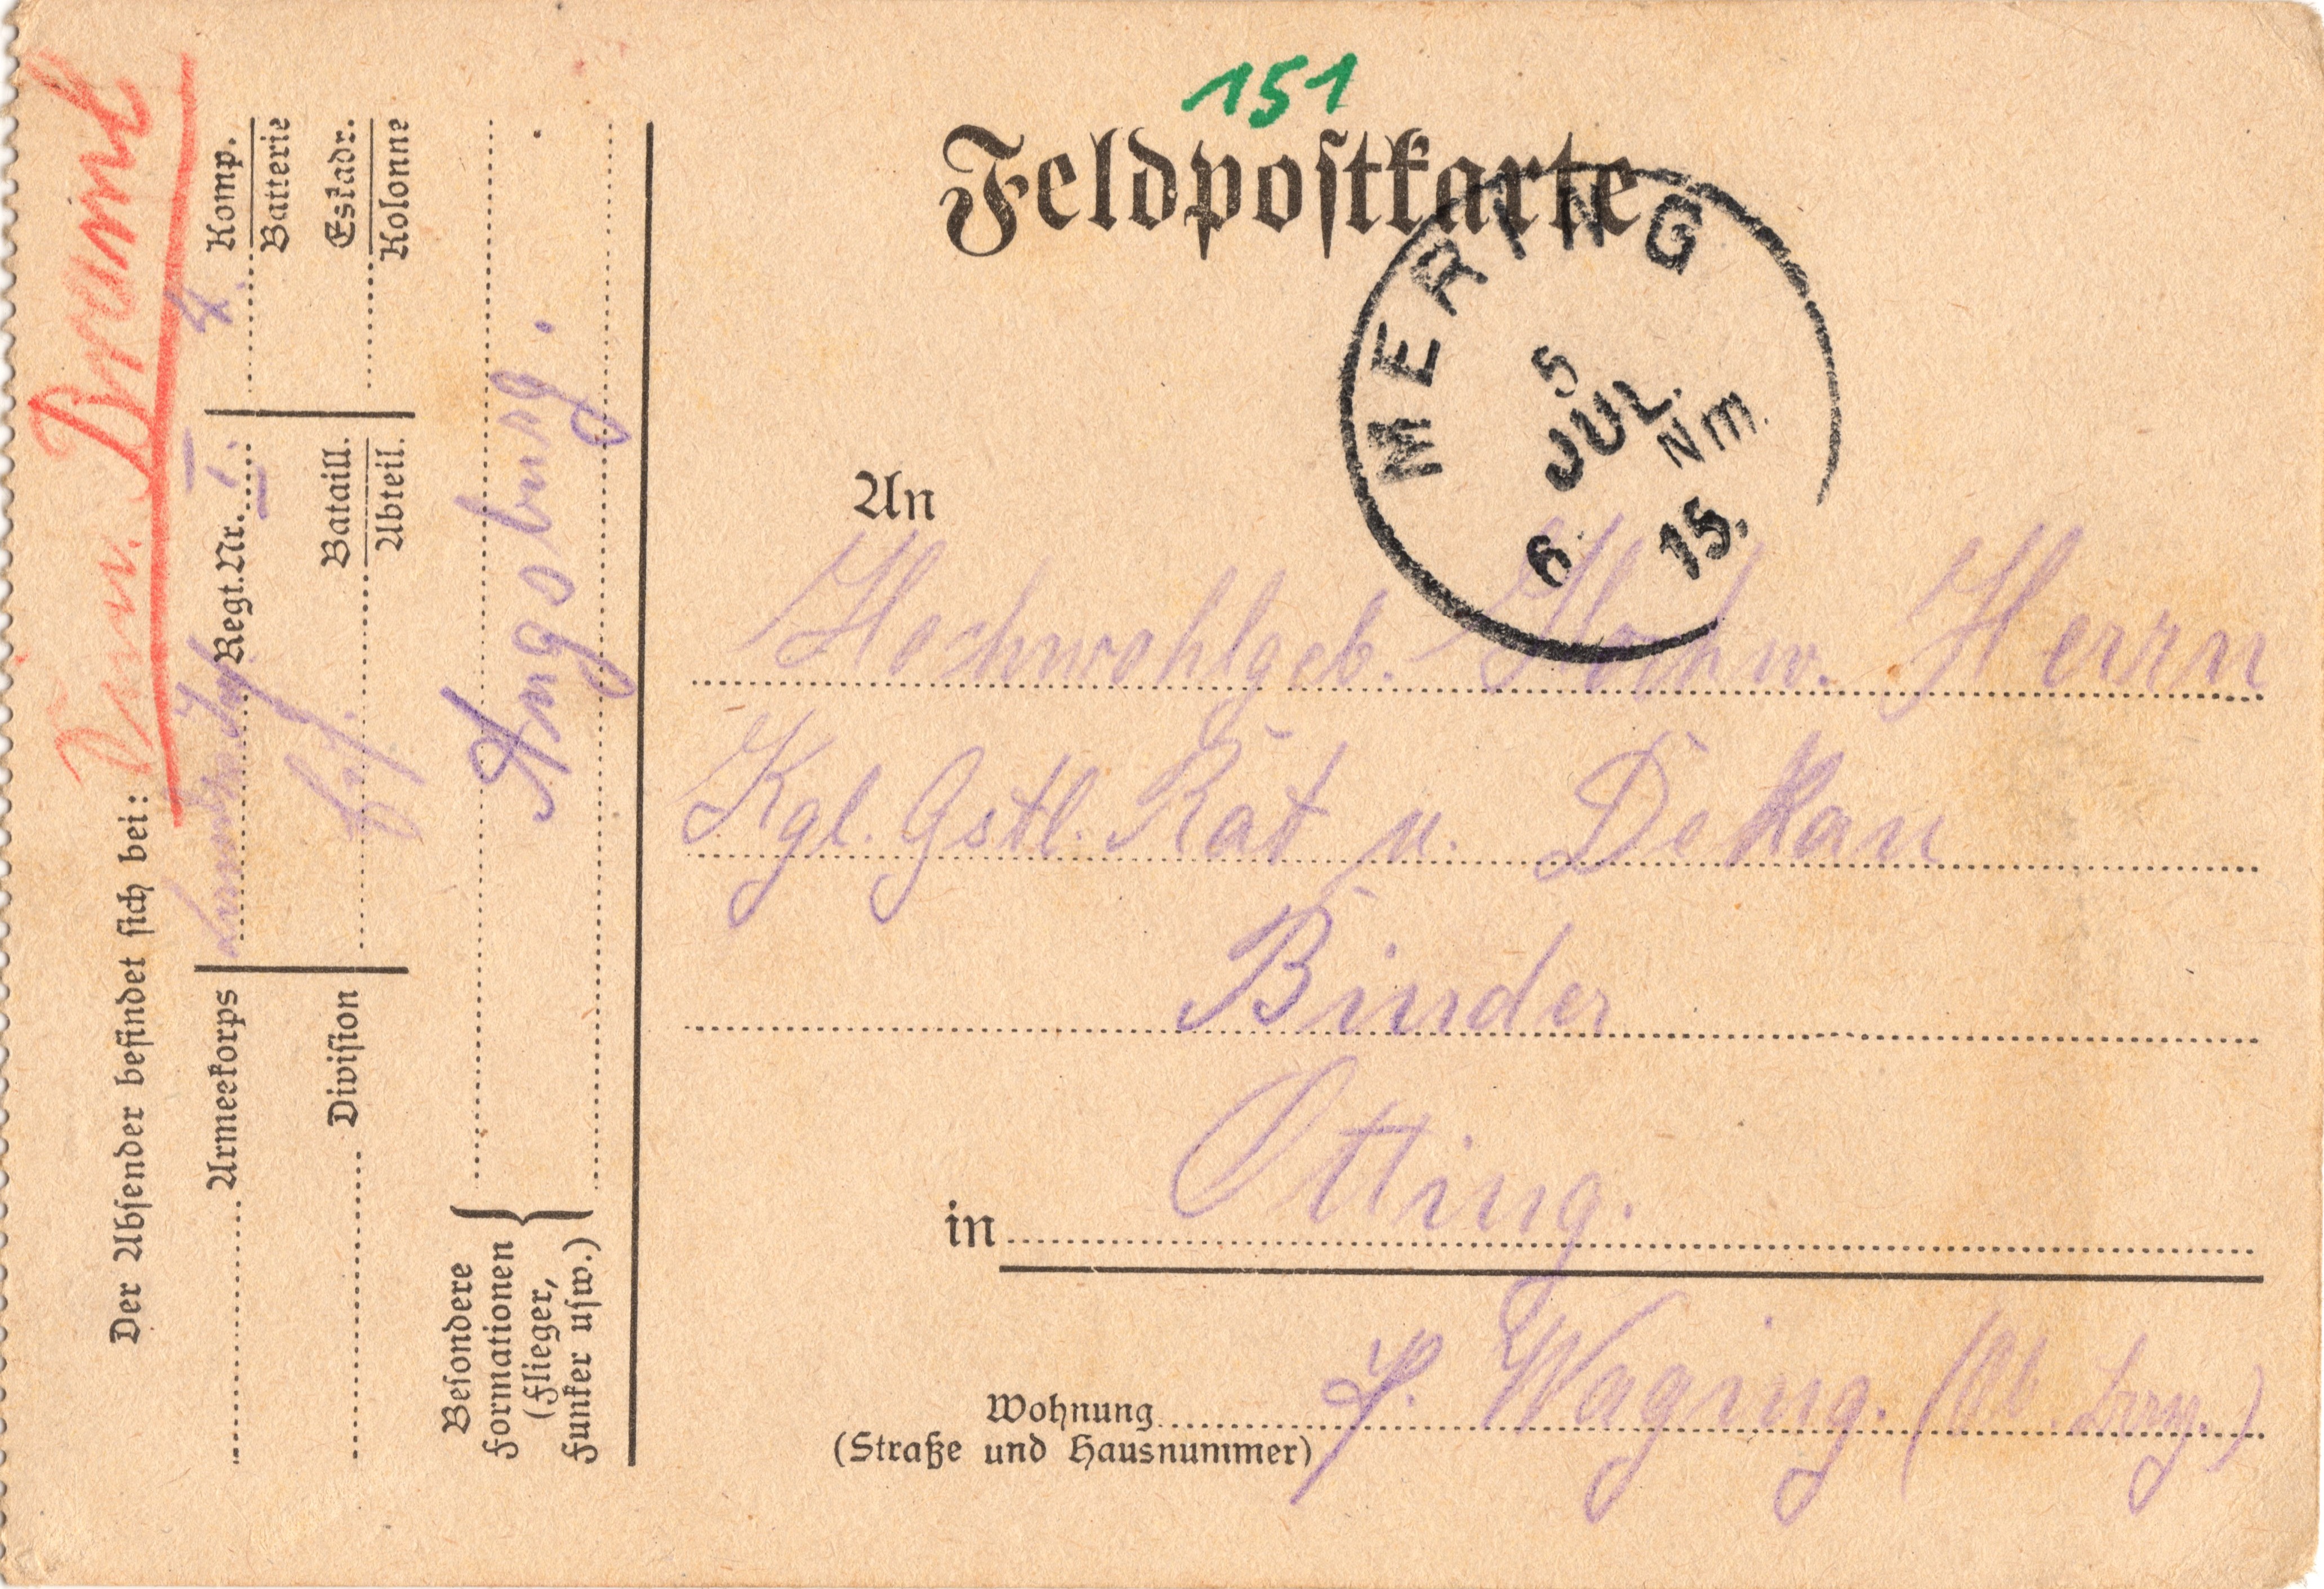 151
Feldpostkarte
MERING
5
JUL.
Nm.
6.
15.
An
Hochwohlgeb. Hochw. Herrn
Kgl. Gstl. Rat u. Dekan
Binder
in Otting.
Wohnung P. Waging. (Ob. bay.)
(Straße und Hausnummer)
Braml
Der Absender befindet sich bei:
Armeekorps
Regt. Nr. I.
4. Komp.
Batterie
Division
Bataill.
Abteil.
Eskadr.
Kolonne
Besondere
Formationen
(Flieger,
Funker usw.)
Augsburg.